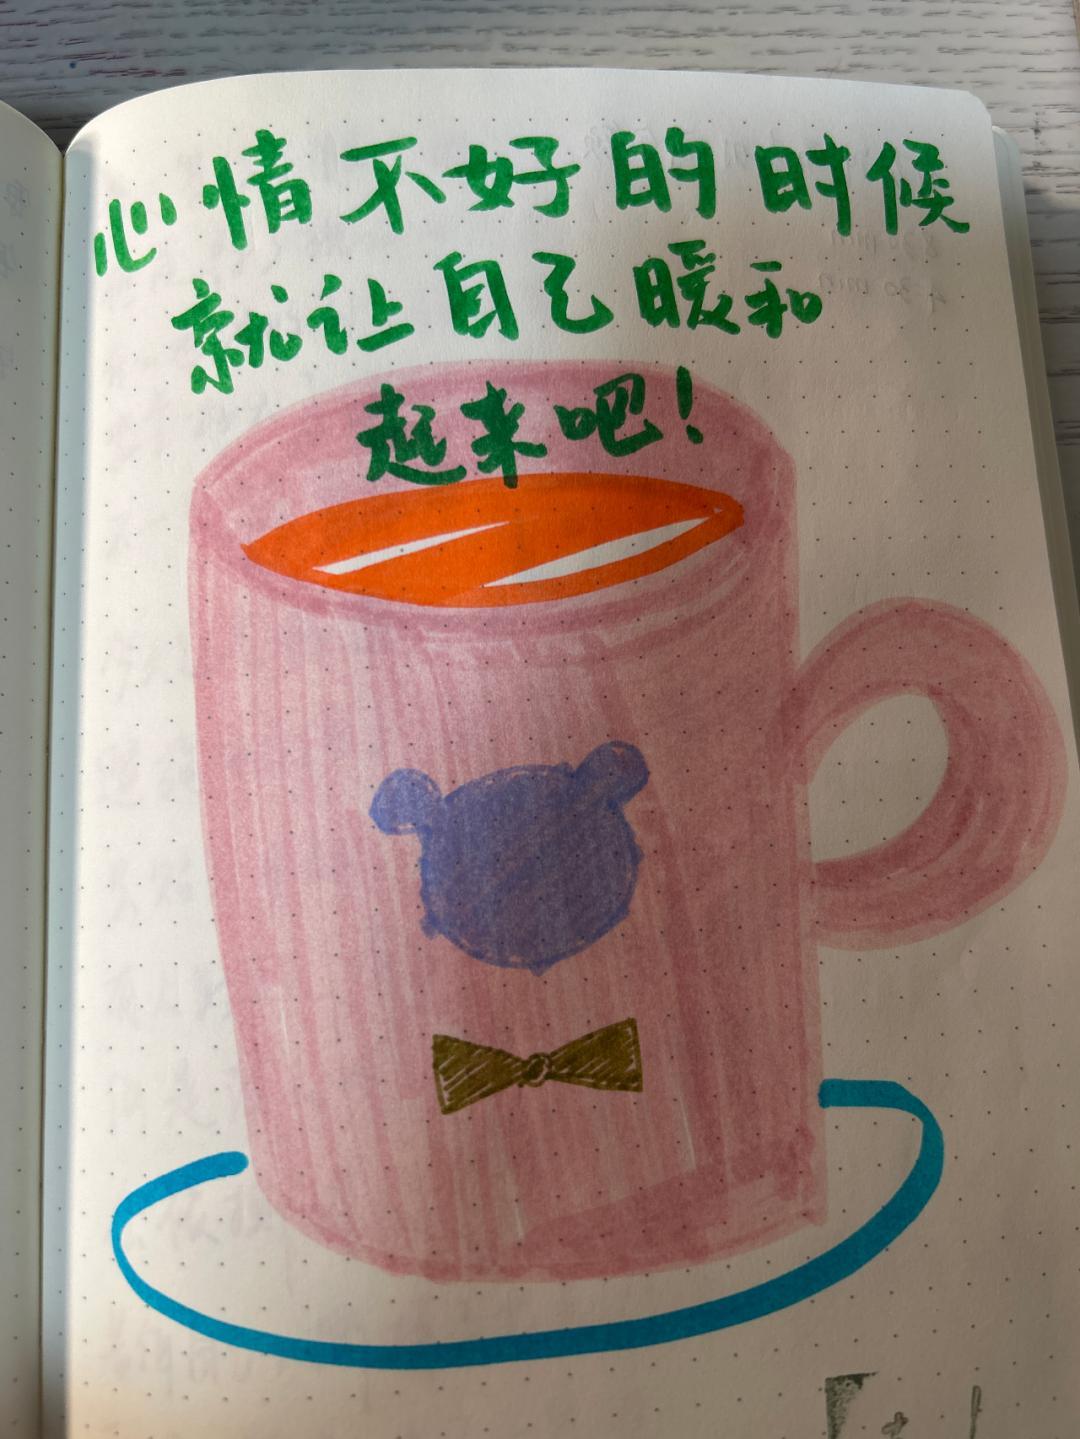 心情不好的时候
就让自己暖和
起来吧!